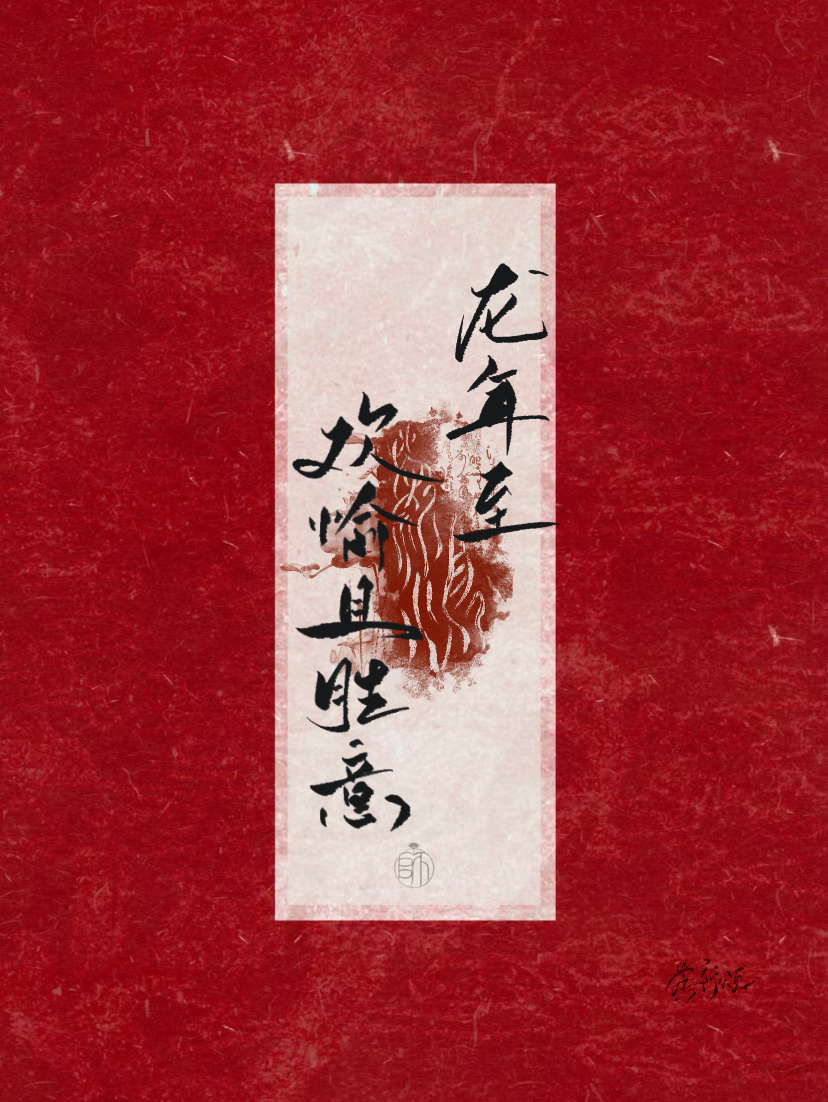 龙年至
欢愉且胜意